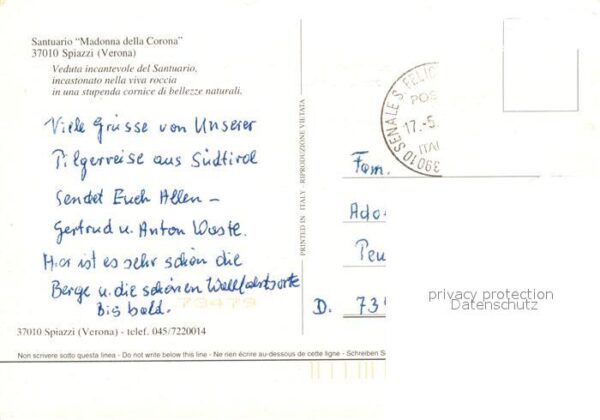 Santuario "Madonna della Corona"
37010 Spiazzi (Verona)
Veduta incantevole del Santuario,
incastonato nella viva roccia
in una stupenda cornice di bellezze naturali.
Viele Grüsse von Unserer
Pilgerreise aus Südtirol
Sendet Euch Allen -
Gertrud u. Anton
Hier ist es sehr schön die
Berge u. die schönen Wallfahrtsorte
Bis bald.
73479
37010 Spiazzi (Verona) - telef. 045/7220014
Non scrivere sotto questa linea - Do not write below this line - Ne rien écrire au-dessous de cette ligne - Schreiben S
PRINTED IN ITALY - RIPRODUZIONE VIETATA
39010 SENALE S. FELIC
POS
17.-5.
ITAL
Fam.
Ado
Peu
D. 73
privacy protection
Datenschutz